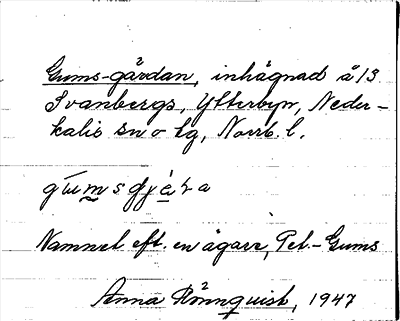 Gums-gärdan, inhägnad å 13
Svanbergs, Ytterbyn, Neder-
kalix sn o tg, Norrb. l.
Namnet eft. en ägare, Pet-Gums
Anna Rönnquist, 1947